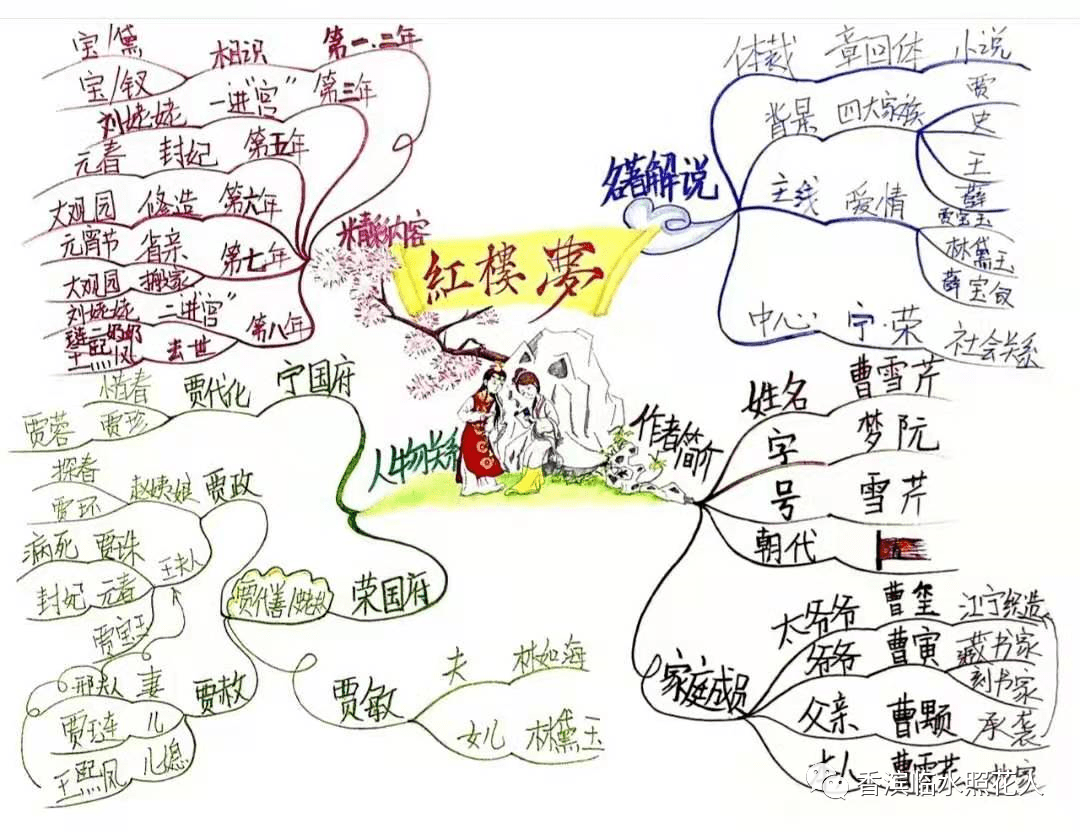 紅樓夢
名著解说
体裁 章回体 小说
背景 四大家族
贾
史
王
薛
主线 爱情
贾宝玉
林黛玉
薛宝钗
中心 宁·荣 社会关系
作者简介
姓名 曹雪芹
字 梦阮
号 雪芹
朝代
家庭成员
太爷爷 曹玺 江宁织造
爷爷 曹寅 藏书家
刻书家
父亲 曹颙 承袭
本人 曹雪芹
精彩内容
第一、二年 相识 宝/黛
宝/钗
第三年 一进"宫" 刘姥姥
第五年 封妃 元春
第六年 修造 大观园
第七年 省亲 元宵节
搬家 大观园
第八年 二进"宫" 刘姥姥
去世
王熙凤
人物关系
宁国府 贾代化 惜春
贾珍 贾蓉
荣国府
贾代善/史太君
贾政 赵姨娘 探春
贾环
王夫人 贾珠 病死
元春 封妃
贾宝玉
贾赦 妻 邢夫人
儿 贾琏
儿媳 王熙凤
贾敏 夫 林如海
女儿 林黛玉
香滨临水照花人